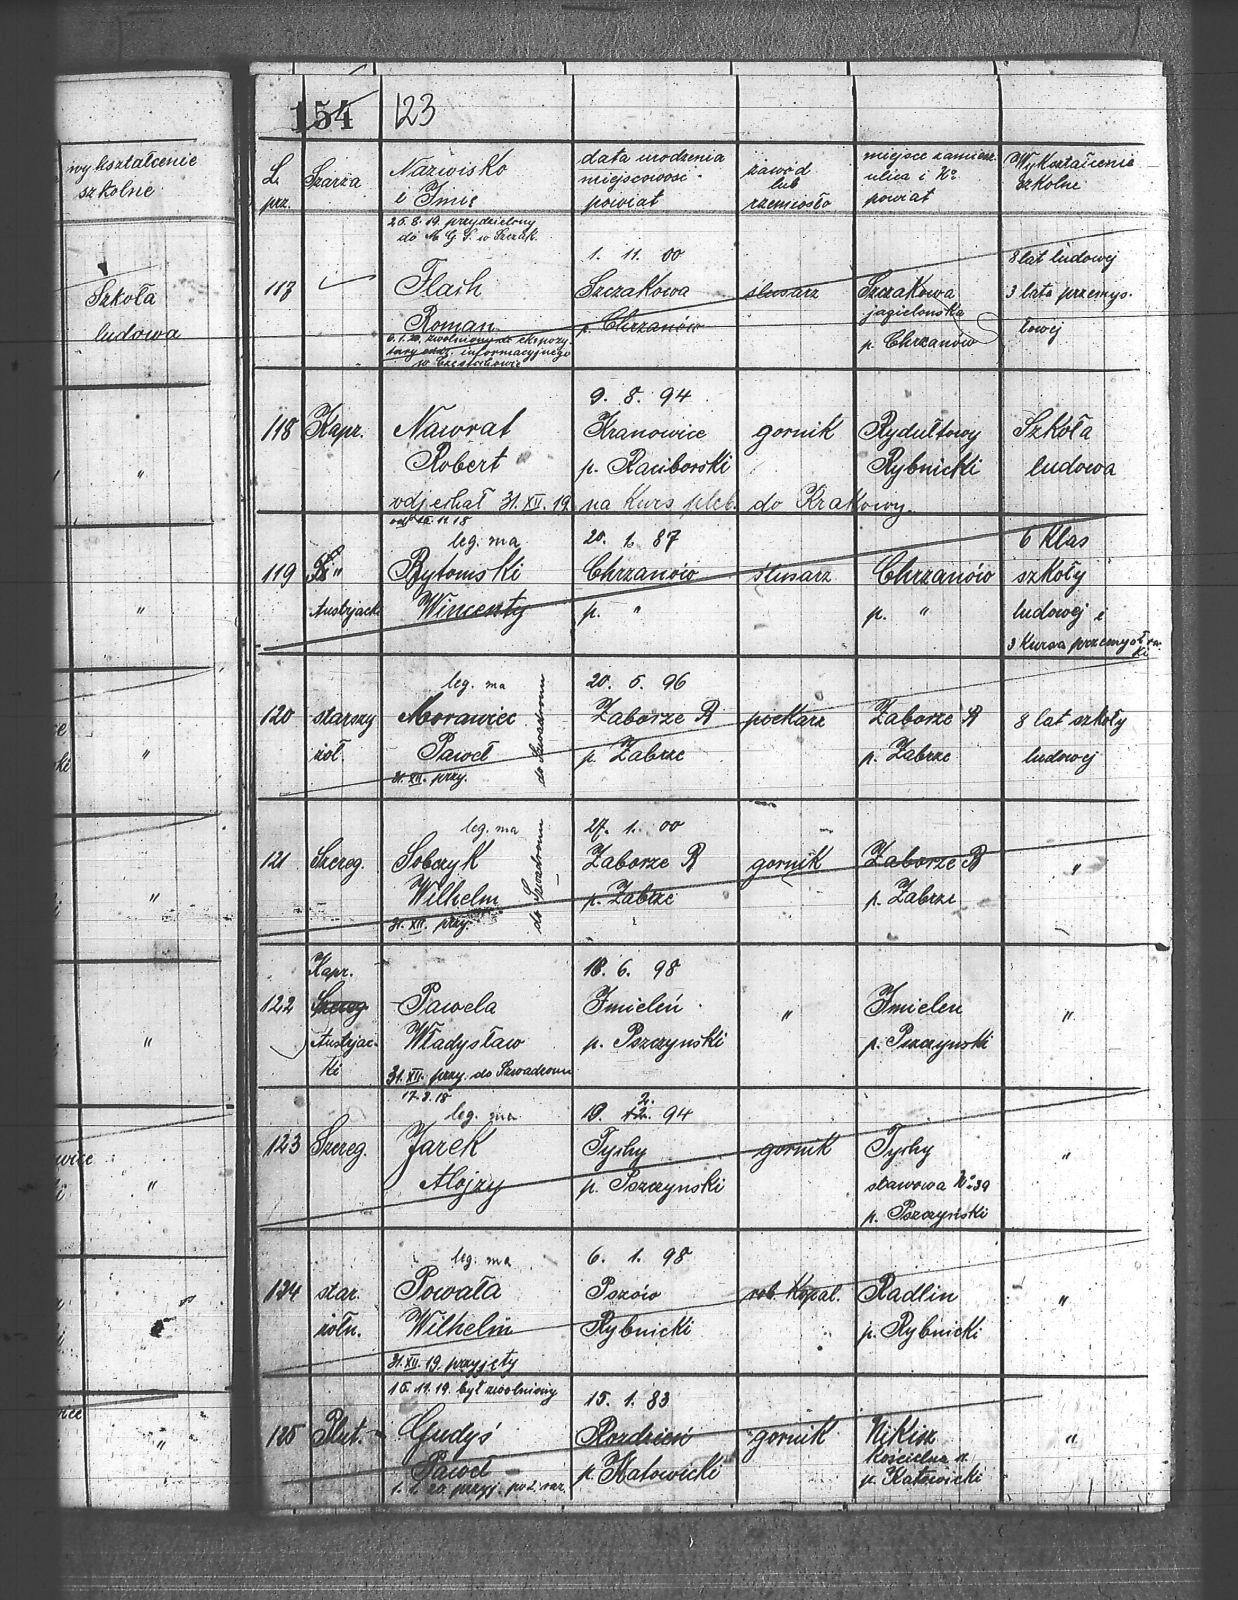 wykształcenie
szkolne
Szkoła
ludowa
"
"
"
"
"
"
"
"
154 123
L. prz.
Szarża
Nazwisko
i Imię
data urodzenia
miejscowość
powiat
zawód
lub
rzemiosło
miejsce zamiesz.
ulica i No
powiat
Wykształcenie
szkolne
26.8.19. przydzielony
do M G S. w Szczak.
117
Flach
Roman
6.1.20. zwolniony do ekspozy-
tury oddz. informacyjnego
w Częstochowie
1. 11. 00
Szczakowa
p. Chrzanów
ślusarz
Szczakowa
jagielońska
p. Chrzanów
8 lat ludowej
3 lata przemys-
łowej
118
Kapr.
Nawrat
Robert
9. 8. 94
Kranowice
p. Raciborski
gornik
Rydułtowy
Rybnicki
Szkoła
ludowa
odjechał 31. XII. 19. na Kurs pleb. do Krakowy.
119
Austrjack
leg. ma
Bytomski
Wincenty
20. 1. 87
Chrzanów
p. "
ślusarz
Chrzanów
p. "
6 Klas
szkoły
ludowej i
3 Kursa przemysłow.
120
starszy
żoł.
leg. ma
Morawiec
Paweł
31. XII. przy.
do Szwadronu
20. 6. 96
Zaborze B
p. Zabrze
piekarz
Zaborze B
p. Zabrze
8 lat szkoły
ludowej
121
Szereg.
leg. ma
Sobczyk
Wilhelm
31. XII. przy.
do Szwadronu
27. 1. 00
Zaborze B
p. Zabrze
gornik
Zaborze B
p. Zabrze
"
122
Kapr.
Szereg
Austrjac-
ki
Pawela
Władysław
31. XII. przy. do Szwadronu
18. 6. 98
Imieleń
p. Pszczynski
"
Imielen
p. Pszczynski
"
123
Szereg.
leg. ma
Jarek
Alojzy
10. 2. 94
Tychy
p. Pszczynski
gornik
Tychy
stawowa No 39
p. Pszczyński
"
124
star.
żołn.
leg. ma
Powała
Wilhelm
31. XII. 19. przyjęty
6. 1. 98
Pszów
Rybnicki
rob. Kopal.
Radlin
p. Rybnicki
"
125
Plut.
15. 11. 19. był zwolniony
Gudyś
Paweł
1. 1. 20. przyj. po 2. raz.
15. 1. 83
Rozdzień
p. Katowicki
gornik
Nikisz
Kościelna
p. Katowicki
"